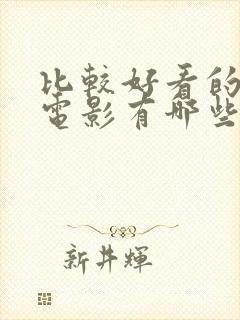 比較好看的
電影有哪些
新井輝